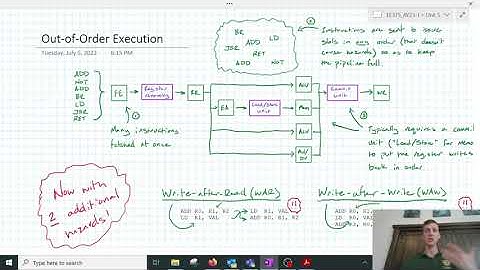 Out-of-Order Execution
Tuesday, July 5, 2022 6:15 PM
BR
ADD LD
JSR RET
ADD NOT
Instructions are sent to issue
slots in any order (that doesn't
cause hazards) so as to keep
the pipeline full.
ADD
NOT
ADD
BR
LD
JSR
RET
FE
Register
Renaming
RR
EA
Load/Store
Unit
ALU
Mem
ALU
Commit
Unit
WR
Many instructions
fetched at once
Typically requires a commit
unit ("Load/Store" for Mem)
to put the register writes
back in order.
Now with
2 additional
hazards!
Write-after-Read (WAR)
ADD R0, R1, R2
LD R1, VAL
LD R1, VAL
ADD R0, R1, R2
Write-after-Write (WAW)
Type here to search